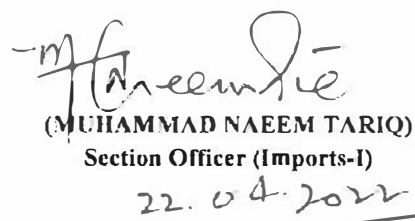 (MUHAMMAD NAEEM TARIQ)
Section Officer (Imports-I)
22.04.2022